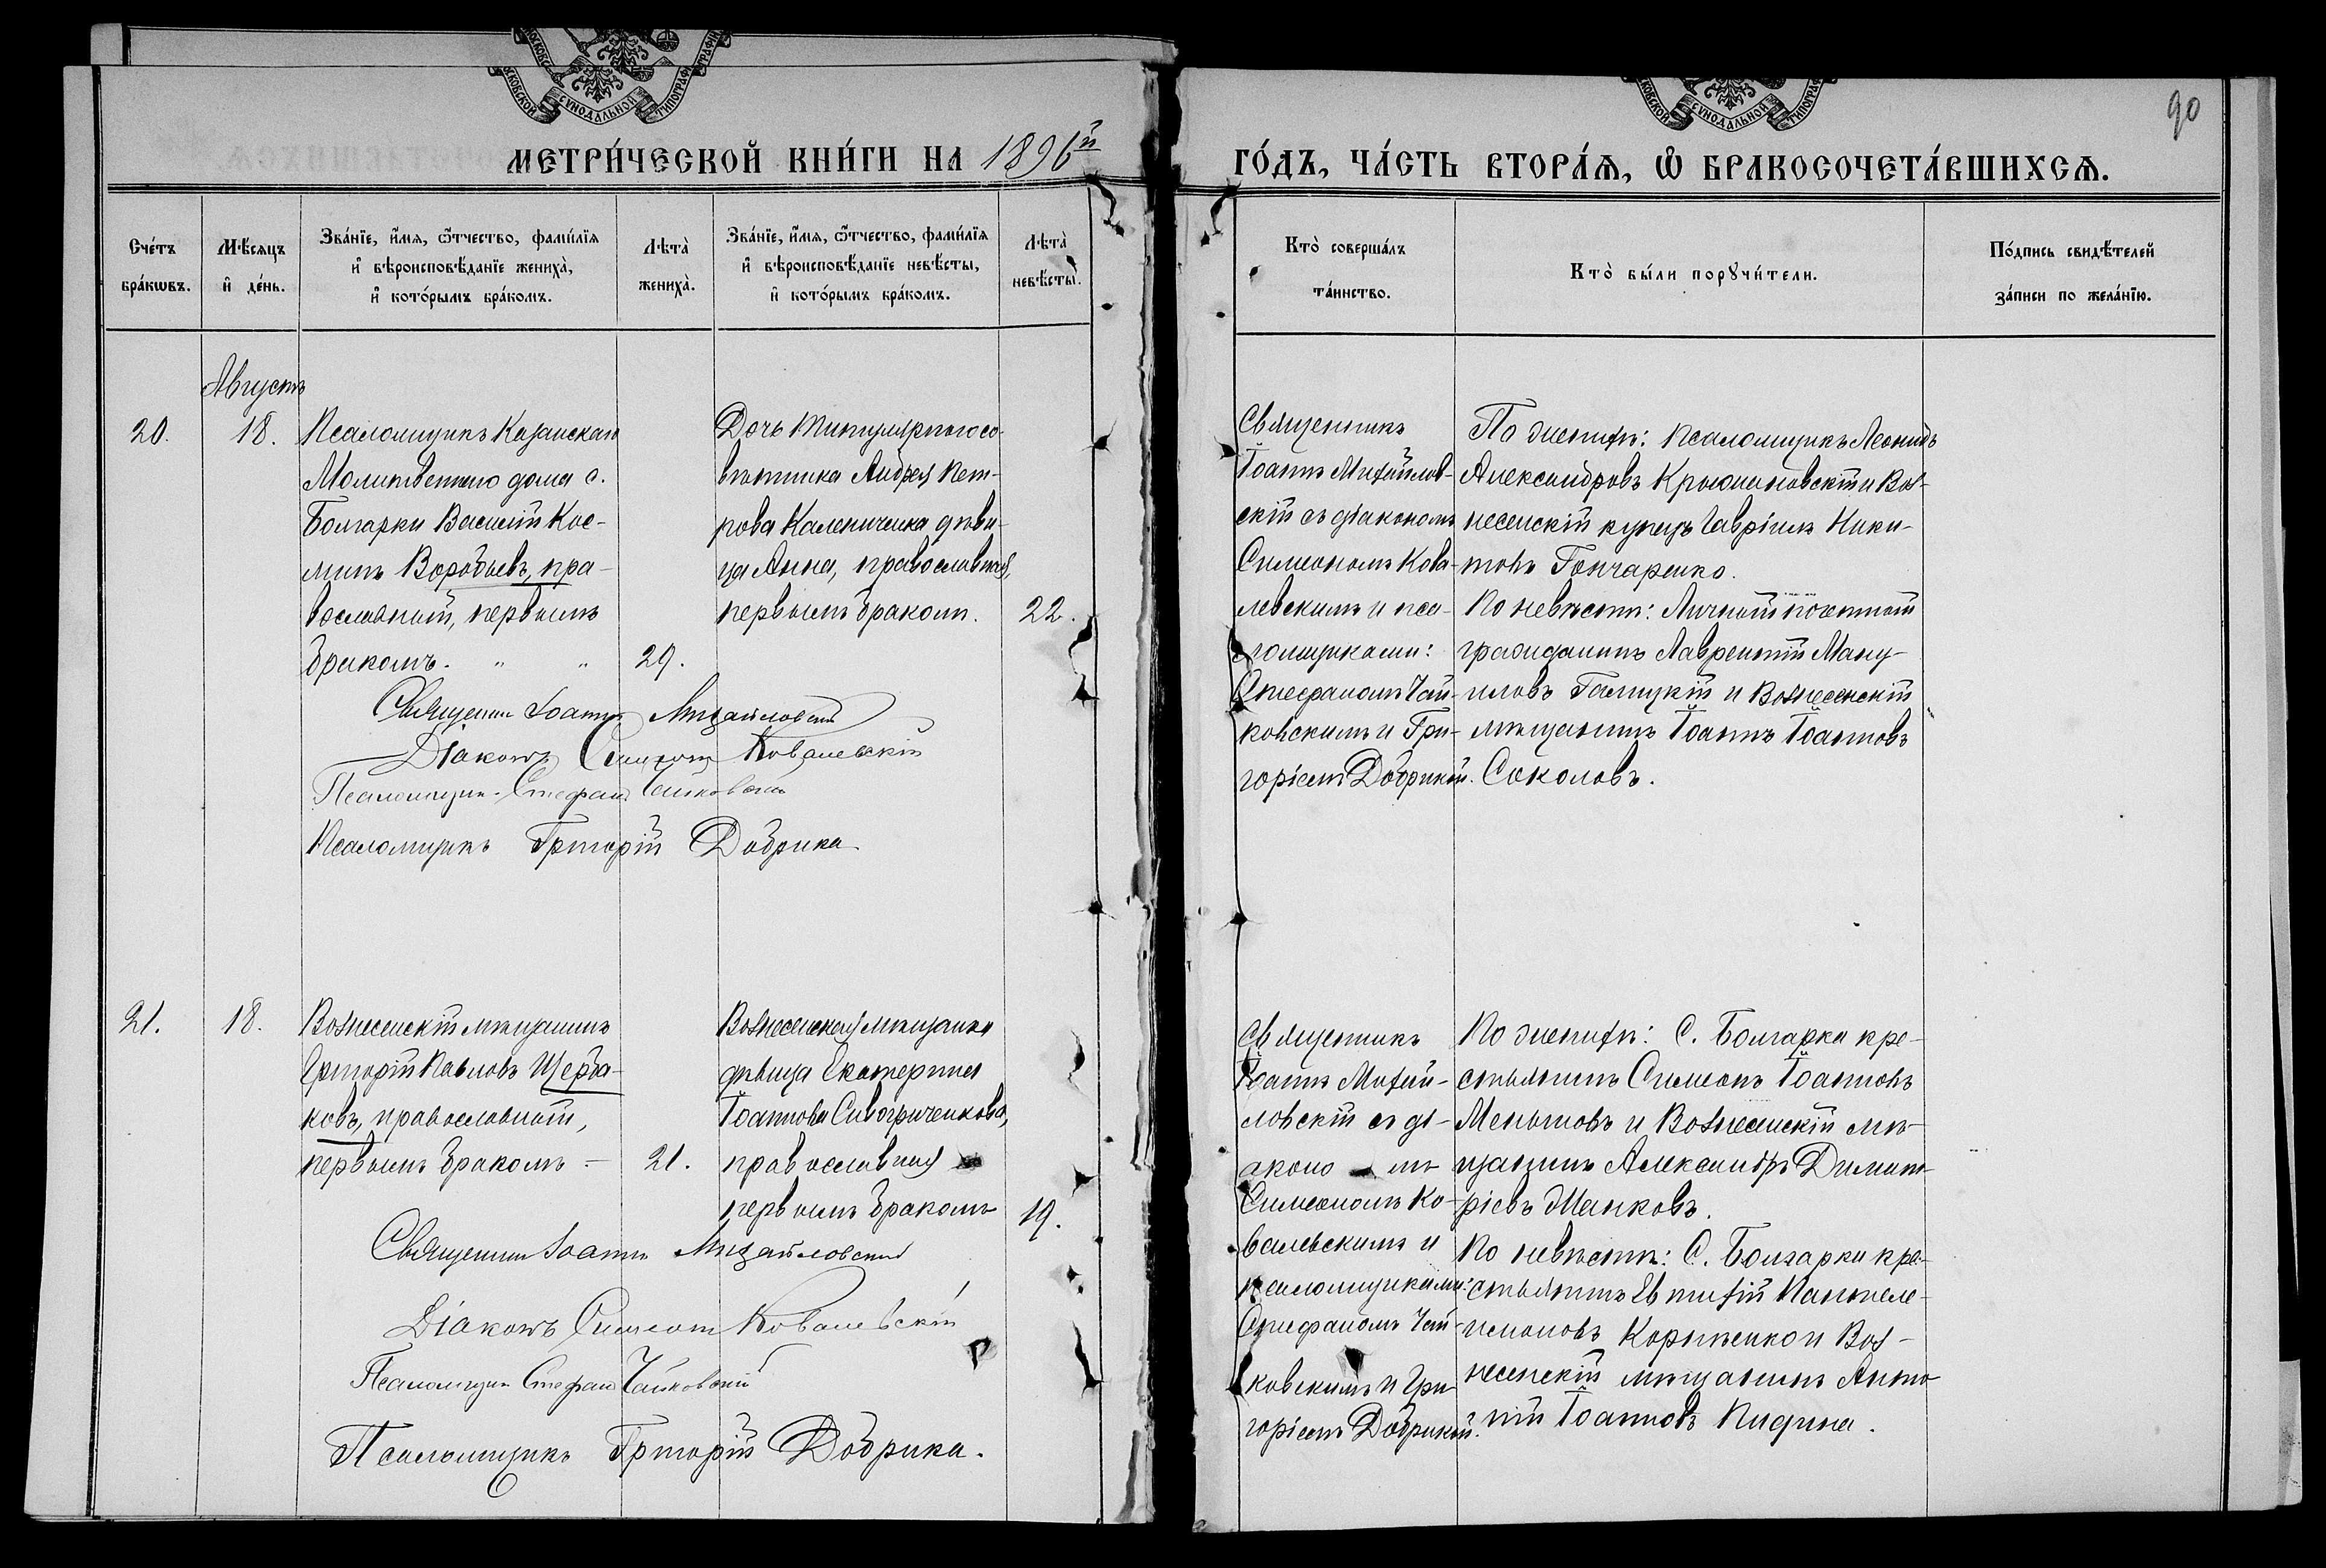 90
МЕТРИ́ЧЕСКОЙ КНИ́ГИ НА 1896й
ГО́ДЪ, ЧА́СТЬ ВТОРА́Ѧ, Ѽ БРАКОСОЧЕТА́ВШИХСѦ.
Сче́тъ
бра́кѡвъ.
Мѣ́сяцъ
и҆ де́нь.
Зва́нїе, и҆́мѧ, ѻ҆́тчество, фами́лїѧ
и҆ вѣроисповѣ́данїе жениха̀,
и҆ кото́рымъ бра́комъ.
Лѣта̀
жениха̀.
Зва́нїе, и҆́мѧ, ѻ҆́тчество, фами́лїѧ
и҆ вѣроисповѣ́данїе невѣ́сты,
и҆ кото́рымъ бра́комъ.
Лѣта̀
невѣ́сты.
Кто̀ соверша́лъ
та́инство.
Кто̀ бы́ли порꙋчи́тели.
По́дпись свидѣ́телей
за́писи по жела́нїю.
Августъ
20.
18.
Псаломщикъ Казанскаго
Молитвеннаго дома с.
Болгарки Василій Кос-
минъ Воробьевъ, пра-
вославный, первымъ
бракомъ. " "
29.
Дочь титулярнаго со-
вѣтника Андрея Пет-
рова Калениченка дѣви-
ца Анна, православная,
первымъ бракомъ.
22.
Священникъ
Іоаннъ Михайлов-
скій съ діакономъ
Симеономъ Кова-
левскимъ и пса-
ломщиками:
Стефаномъ Чай-
ковскимъ и Гри-
горіемъ Добрикой.
По женихѣ: Псаломщикъ Леонидъ
Александровъ Крыжановскій и Воз-
несенскій купецъ Гавріилъ Ники-
товъ Гончаренко.
По невѣстѣ: Личный почетный
гражданинъ Лаврентій Ману-
иловъ Галицкій и Вознесенскій
мѣщанинъ Іоаннъ Іоанновъ
Соколовъ.
Священникъ Іоаннъ Михайловскій
Діаконъ Симеонъ Ковалевскій
Псаломщик Стефанъ Чайковскій
Псаломщикъ Григорій Добрика
21.
18.
Вознесенскій мѣщанинъ
Григорій Павловъ Щерба-
ковъ, православный,
первымъ бракомъ -
21.
Вознесенская мѣщанка
дѣвица Екатерина
Іоаннова Сивогриченкова,
православная
первымъ бракомъ
19.
Священникъ
Іоаннъ Михай-
ловскій съ ді-
аконо мъ
Симеономъ Ко-
валевскимъ и
псаломщиками:
Стефаномъ Чай-
ковскимъ и Гри-
горіемъ Добрикой.
По женихѣ: С. Болгарка кре-
стьянинъ Симеонъ Іоанновъ
и Вознесенскій мѣ-
щанинъ Александръ Димит-
ріевъ Манковъ.
По невѣстѣ: С. Болгарки кре-
стьянинъ Евтихій Пантеле-
имоновъ Корніенко и Воз-
несенскій мѣщанинъ Анто-
ній Іоанновъ
Священникъ Іоаннъ Михайловскій
Діаконъ Симеонъ Ковалевскій
Псаломщик Стефанъ Чайковскій
Псаломщикъ Григорій Добрика.